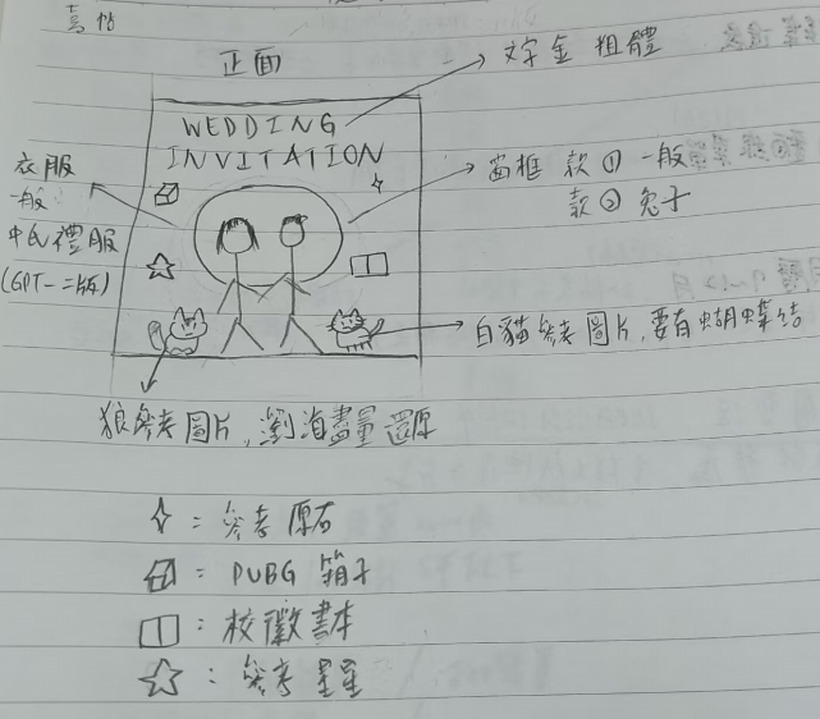 喜帖
正面
文字金 粗體
WEDDING
INVITATION
窗框 款① 一般
款② 兔子
衣服
一般
中式禮服
(GPT-二版)
白貓參考圖片,要有蝴蝶結
狼參考圖片,瀏海盡量還原
：參考原石
：PUBG 箱子
：校徽書本
：參考星星